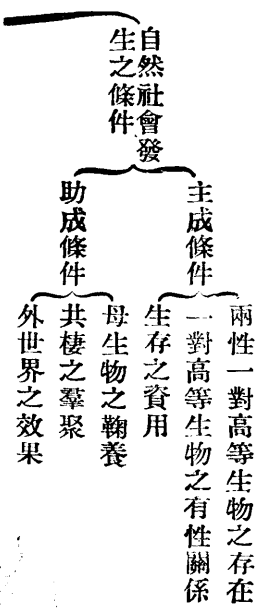 自然社會發
生之條件
主成條件
兩性一對高等生物之存在
一對高等生物之有性關係
生存之資用
助成條件
母生物之鞠養
共棲之羣聚
外世界之效果